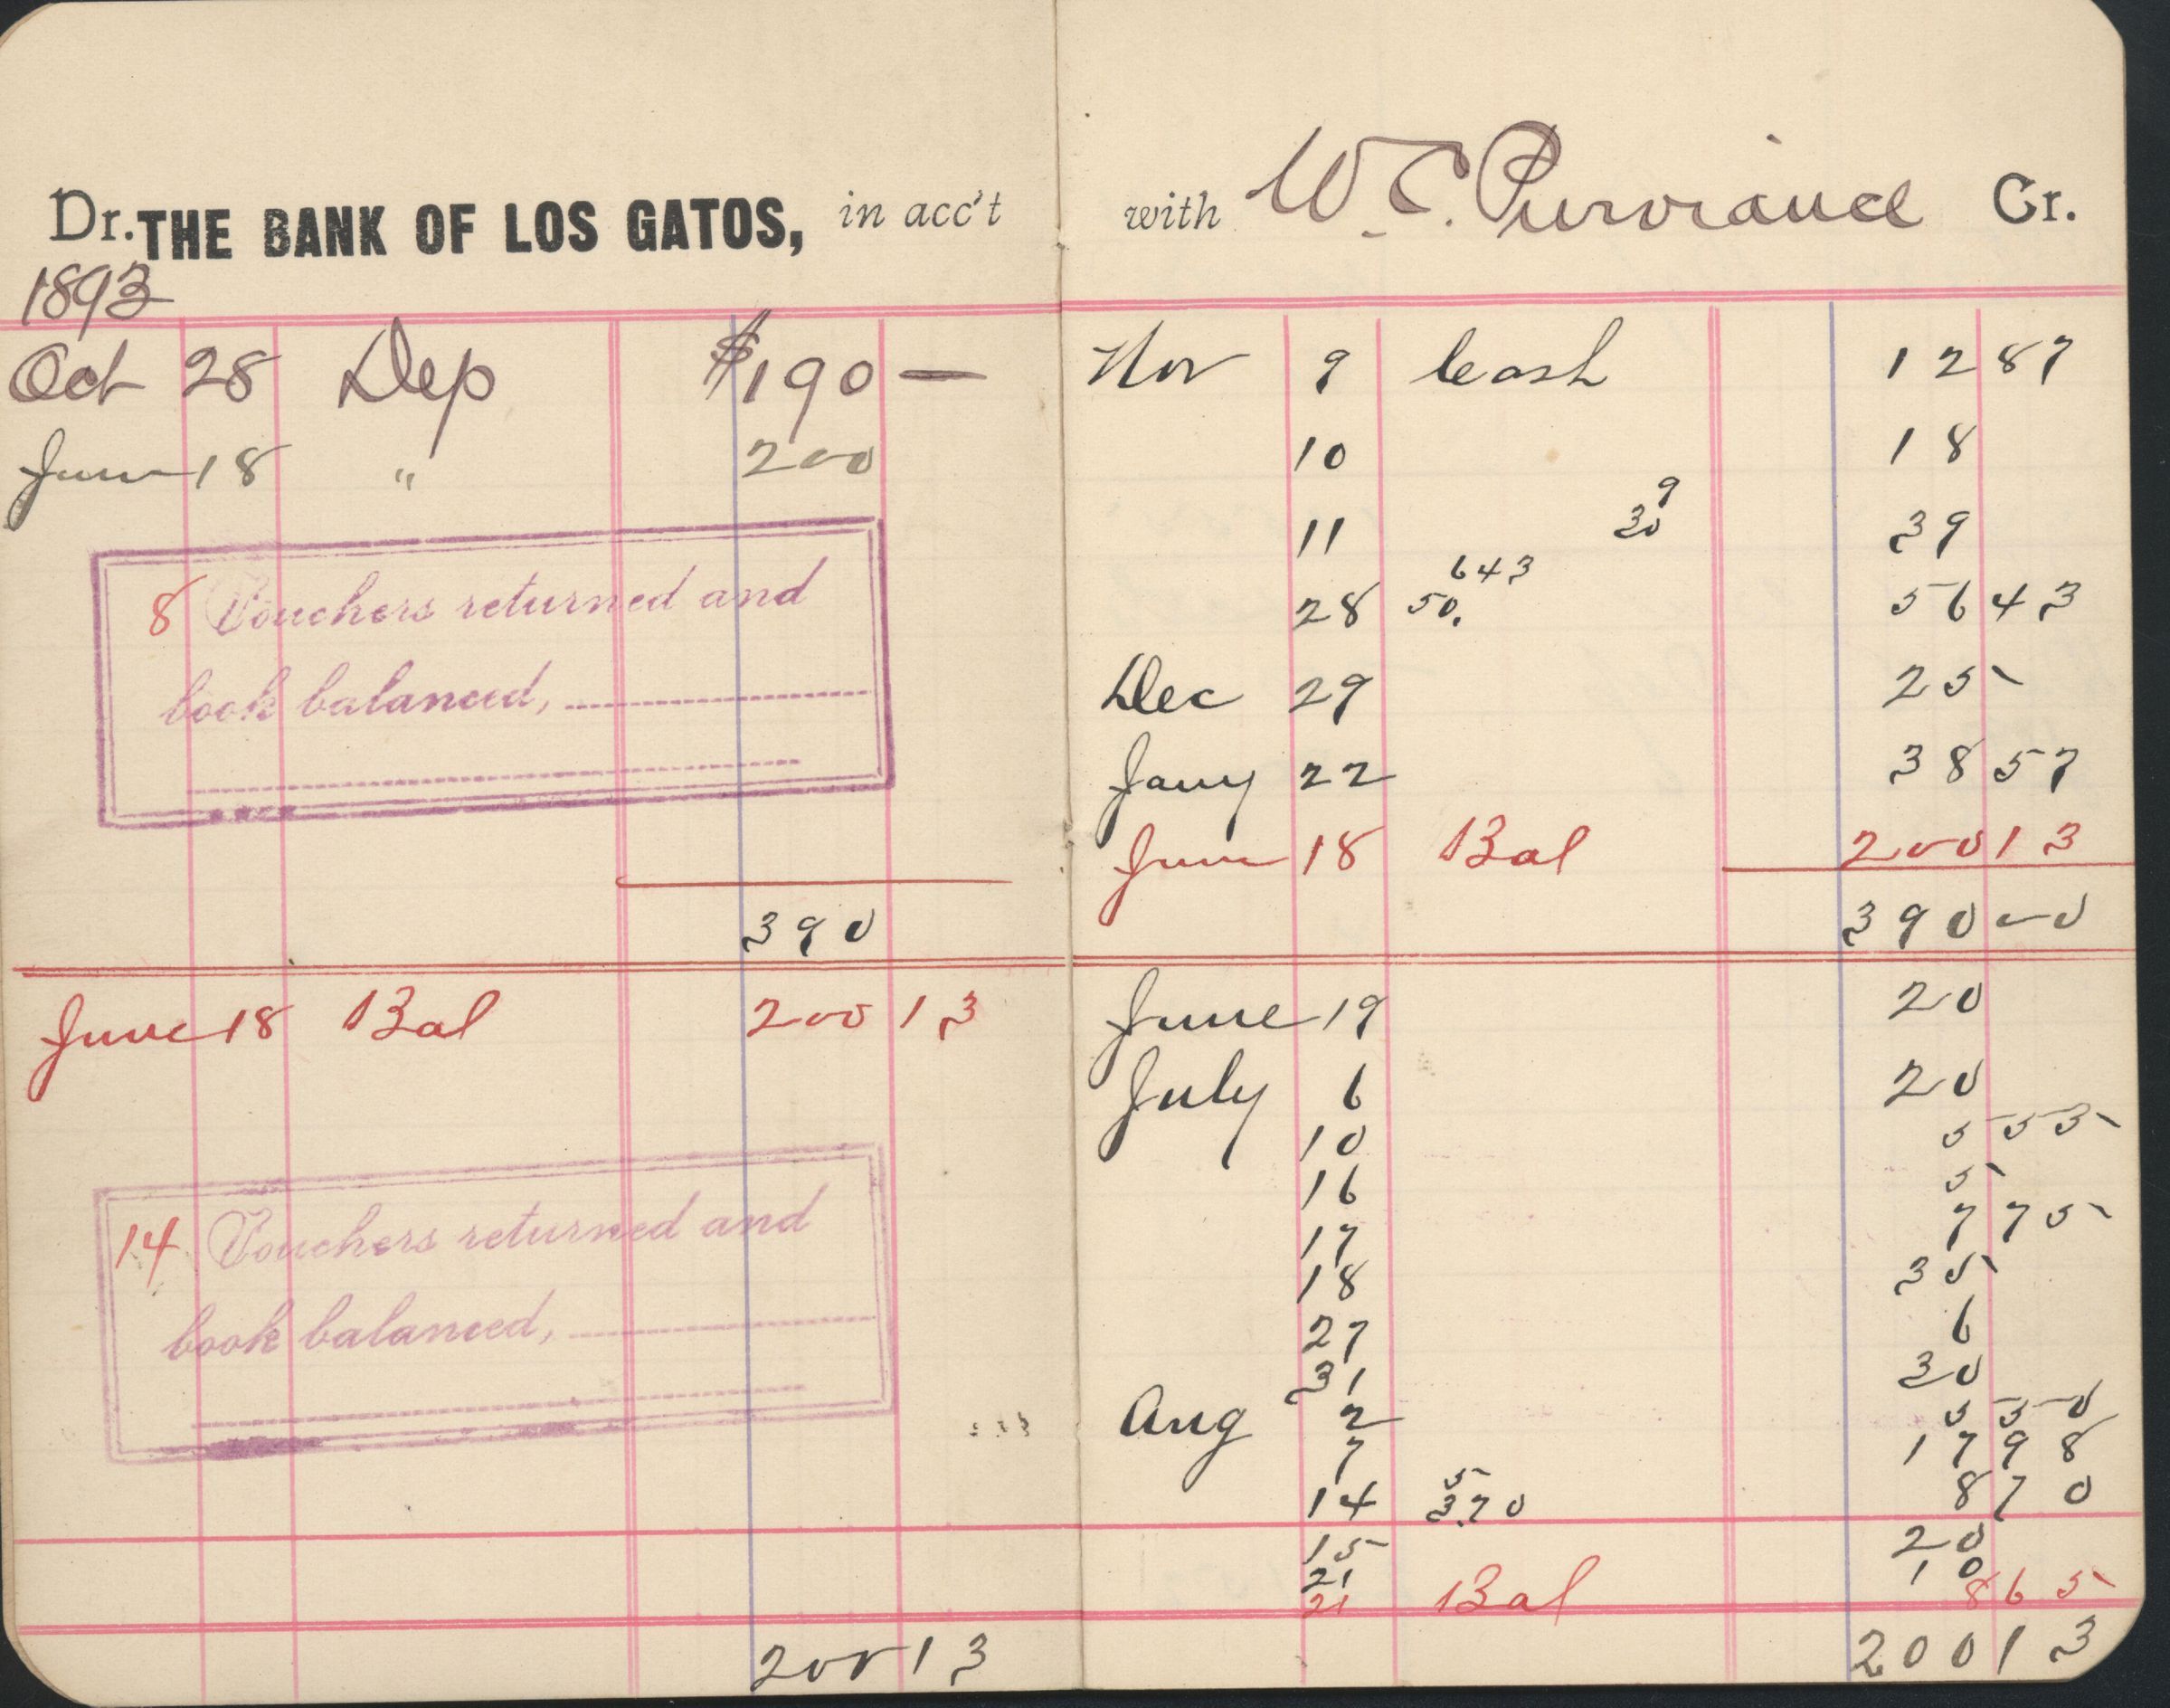 Dr. THE BANK OF LOS GATOS, in acc't
1893
Oct 28 Dep $190 —
June 18 " 200
8 Vouchers returned and
book balanced,
390
June 18 Bal 200 13
14 Vouchers returned and
book balanced,
200 13
with W. C. Purviance Cr.
Nov 9 Cash 12 87
10 18
9
11 30 39
643
28 50. 56 43
Dec 29 25
Jany 22 38 57
June 18 Bal 200 13
390 00
June 19 20
July 6 20
10 5 55
16 5
17 7 75
18 35
27 6
31 30
Aug 2 5 50
7 17 98
5
14 3.70 8 70
15 20
21 10
21 Bal 8 65
200 13